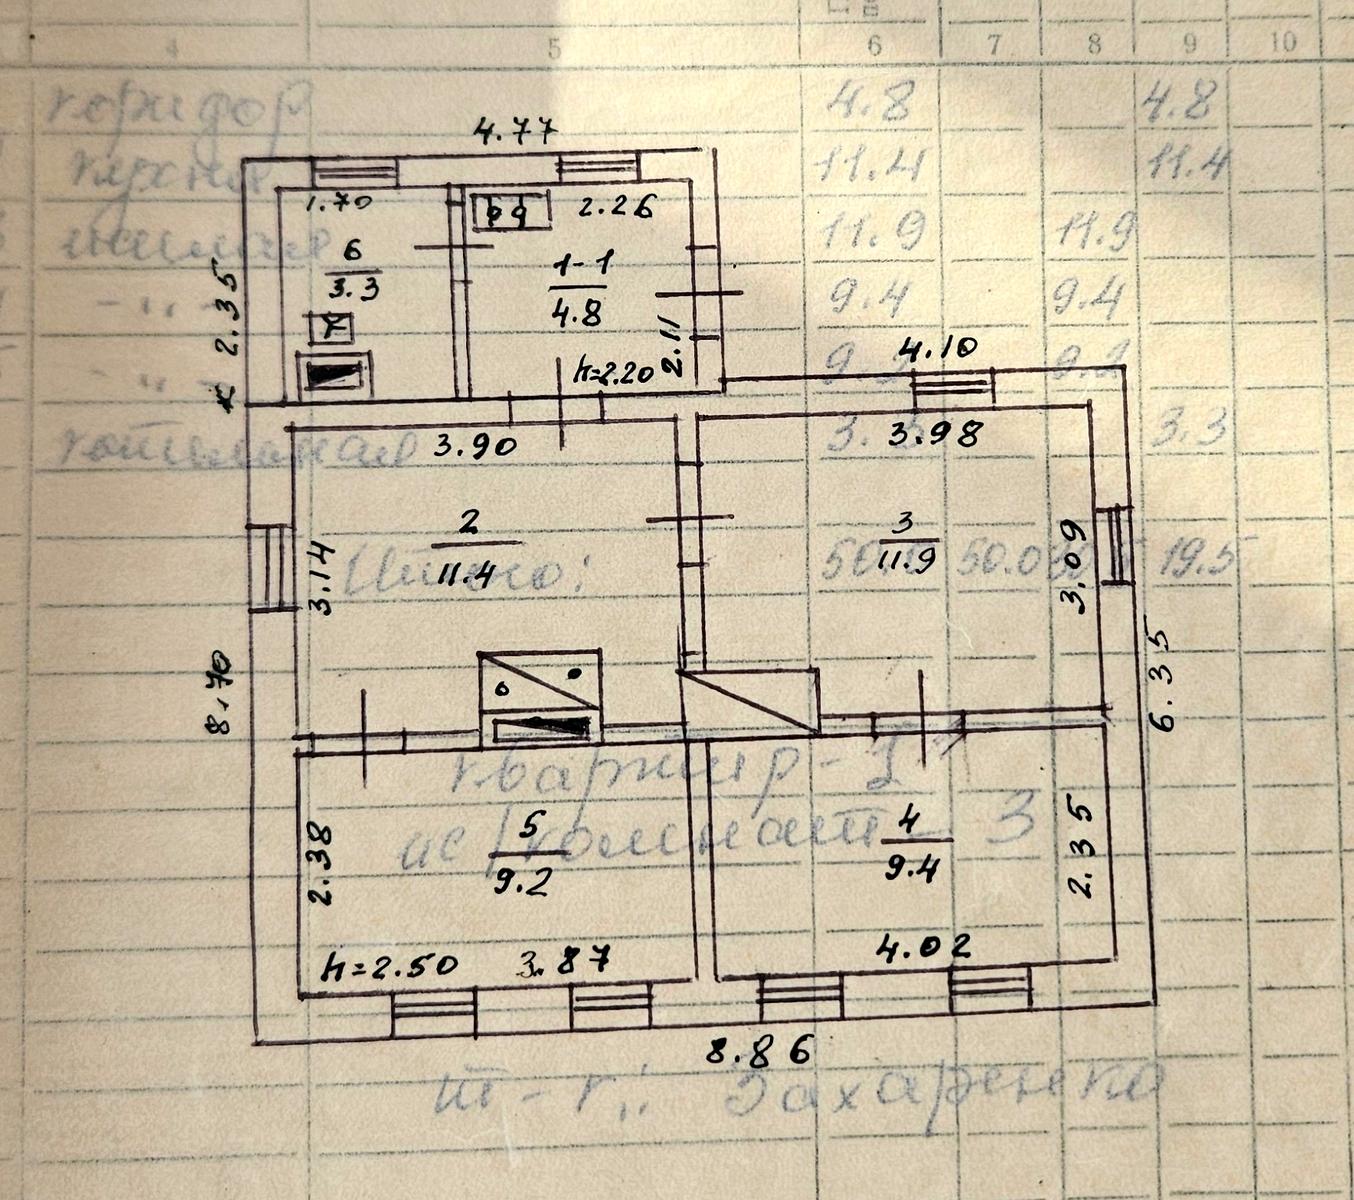 4 5 6 7 8 9 10
коридор 4.8 4.8
кухня 11.4 11.4
жилая 11.9 11.9
-〃- 9.4 9.4
-〃- 9.2 9.2
котельная 3.3 3.3
Итого: 50.0 50.0 19.5
квартир - 1
комнат - 3
Захаренко
4.77
1.70 2.26
6
3.3
1-1
4.8
2.35
2.11
h=2.20
4.10
3.90 3.98
2
11.4
3
11.9
3.14
3.09
8.70
6.35
5
9.2
4
9.4
2.38
2.35
h=2.50 3.87 4.02
8.86